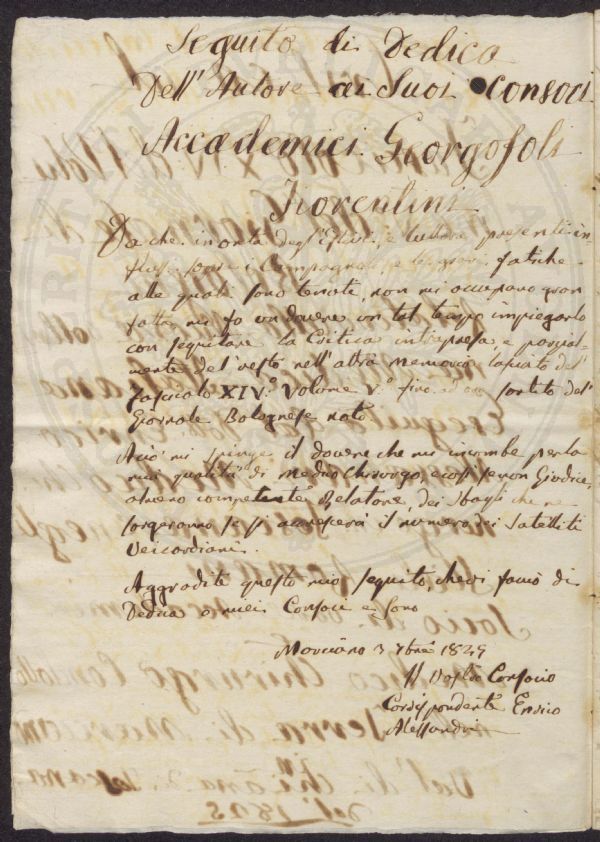 Seguito di Dedica
Dell'Autore ai Suoi Consoci
Accademici Georgofoli
Fiorentini
Da che in onta degl'Estivi, e tuttora presenti in-
flussi sopra i Campagnoli, e le gravi fatiche
alle quali sono tenute, non mi occupano gran
fatto, mi fo un dovere un tal tempo impiegarlo
con seguitare la Critica intrapresa, e parzial-
mente del resto nell'altra Memoria lasciato del
fascicolo XIV.° Volume V.° fino ad ora sortito del
Giornale Bolognese noto.
Acciò mi spinge il dovere che mi incombe per la
mia qualità di Medico Chirurgo, e così se non Giudice,
almeno competente Relatore, dei Sbagli che ne
sorgeranno se si accrescerà il numero dei Satelliti
Aggradite questo mio seguito, che vi faccio di
Dedica o miei Consoci e sono
Morciano 3 1829
Il Vostro Consocio
Corrispondente Enrico
Alessandri